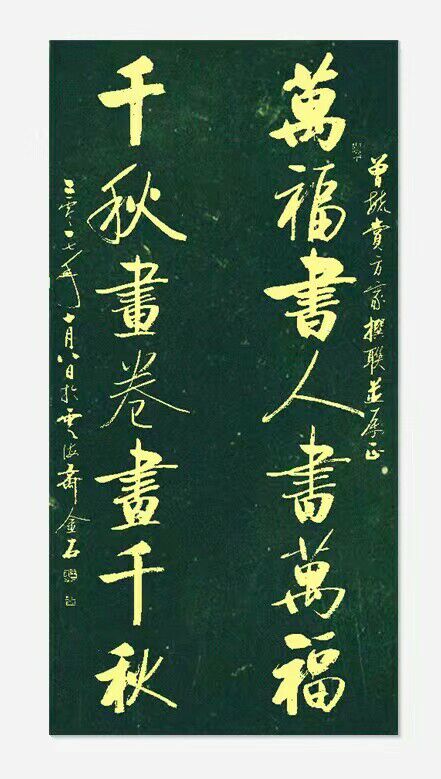 萬福書人書萬福
方家撰聯並屬正
千秋畫卷畫千秋
二零一七年十月八日於雲海齋金石